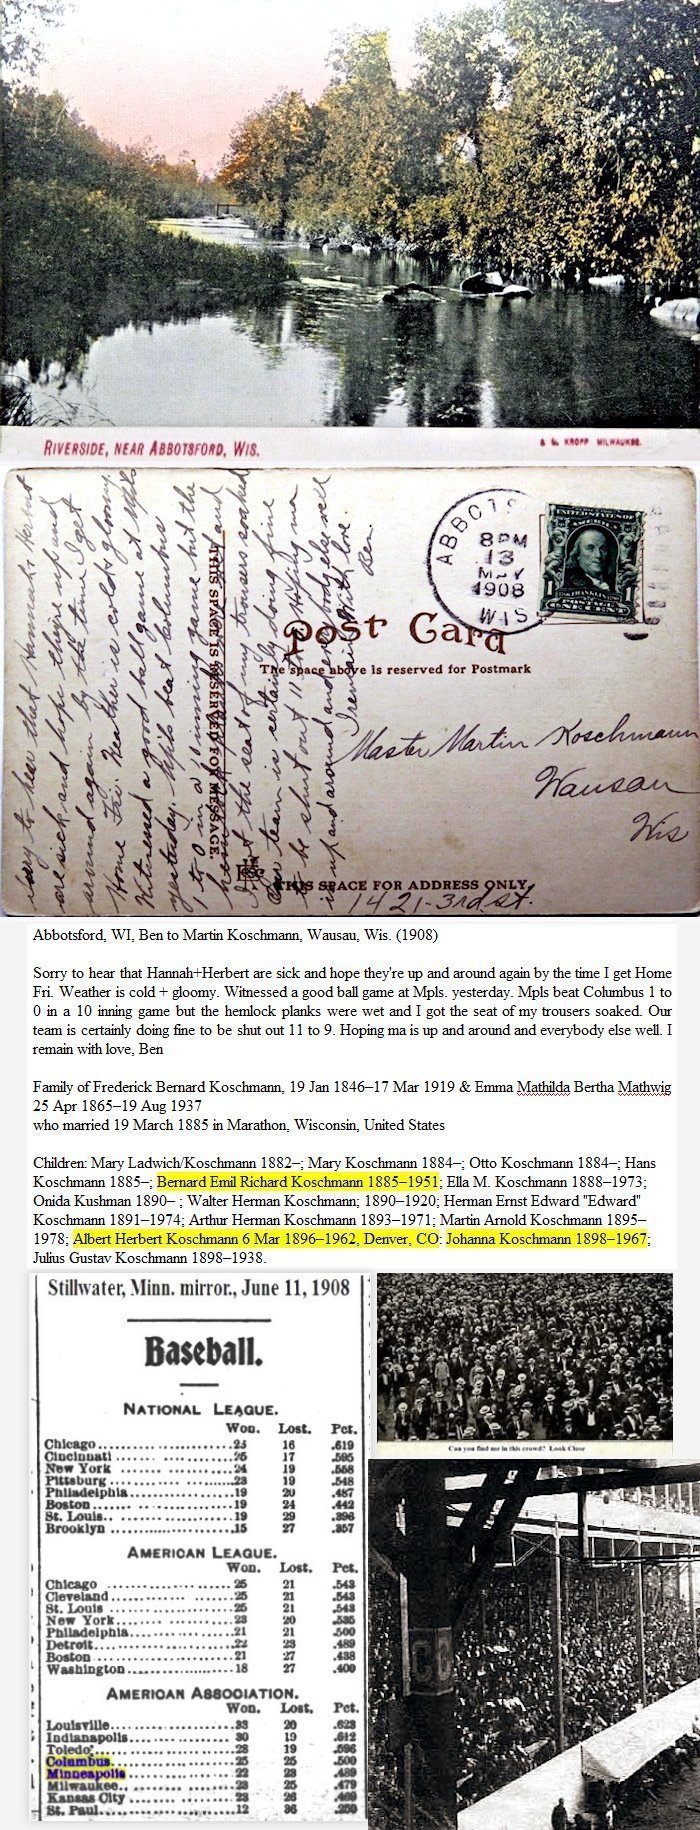 RIVERSIDE, NEAR ABBOTSFORD, WIS.
E. C. KROPP MILWAUKEE.
Sorry to hear that Hannah + Herbert
are sick and hope they're up and
around again by the time I get
Home Fri. Weather is cold + gloomy.
Witnessed a good ball game at Mpls
yesterday. Mpls beat Columbus
1 to 0 in a 10 inning game but the
hemlock planks were wet and
I got the seat of my trousers soaked
Our team is certainly doing fine
to be shut out 11 to 9. Hoping ma
is up and around and everybody else well
I remain with love.
Ben.
THIS SPACE IS RESERVED FOR MESSAGE.
ABBOTS
8 PM
13
MAY
1908
WIS
UNITED STATES OF
AMERICA
1 FRANKLIN 1
POSTAGE
ONE CENT
Post Card
The space above is reserved for Postmark
Master Martin Koschmann
Wausau
Wis
THIS SPACE FOR ADDRESS ONLY.
1421-3rd st.
Abbotsford, WI, Ben to Martin Koschmann, Wausau, Wis. (1908)
Sorry to hear that Hannah+Herbert are sick and hope they're up and around again by the time I get Home
Fri. Weather is cold + gloomy. Witnessed a good ball game at Mpls. yesterday. Mpls beat Columbus 1 to
0 in a 10 inning game but the hemlock planks were wet and I got the seat of my trousers soaked. Our
team is certainly doing fine to be shut out 11 to 9. Hoping ma is up and around and everybody else well. I
remain with love, Ben
Family of Frederick Bernard Koschmann, 19 Jan 1846–17 Mar 1919 & Emma Mathilda Bertha Mathwig
25 Apr 1865–19 Aug 1937
who married 19 March 1885 in Marathon, Wisconsin, United States
Children: Mary Ladwich/Koschmann 1882–; Mary Koschmann 1884–; Otto Koschmann 1884–; Hans
Koschmann 1885–; Bernard Emil Richard Koschmann 1885–1951; Ella M. Koschmann 1888–1973;
Onida Kushman 1890– ; Walter Herman Koschmann; 1890–1920; Herman Ernst Edward "Edward"
Koschmann 1891–1974; Arthur Herman Koschmann 1893–1971; Martin Arnold Koschmann 1895–
1978; Albert Herbert Koschmann 6 Mar 1896–1962, Denver, CO; Johanna Koschmann 1898–1967;
Julius Gustav Koschmann 1898–1938.
Stillwater, Minn. mirror., June 11, 1908
Baseball.
NATIONAL LEAGUE.
Won. Lost. Pct.
Chicago 23 16 .619
Cincinnati 25 17 .595
New York 24 19 .558
Pittsburg 23 19 .548
Philadelphia 19 20 .487
Boston 19 24 .442
St. Louis 19 29 .396
Brooklyn 15 27 .357
AMERICAN LEAGUE.
Won. Lost. Pct.
Chicago 25 21 .543
Cleveland 25 21 .543
St. Louis 25 21 .543
New York 23 20 .535
Philadelphia 21 21 .500
Detroit 22 23 .489
Boston 21 27 .438
Washington 18 27 .400
AMERICAN ASSOCIATION.
Won. Lost. Pct.
Louisville 33 20 .623
Indianapolis 30 19 .612
Toledo 28 19 .596
Columbus 25 25 .500
Minneapolis 22 23 .489
Milwaukee 23 25 .479
Kansas City 23 26 .469
St. Paul 12 36 .250
Can you find me in this crowd? Look Close